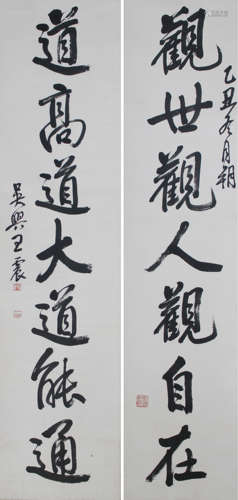 乙丑冬月朔
觀世觀人觀自在
道高道大道能通
吳興王震